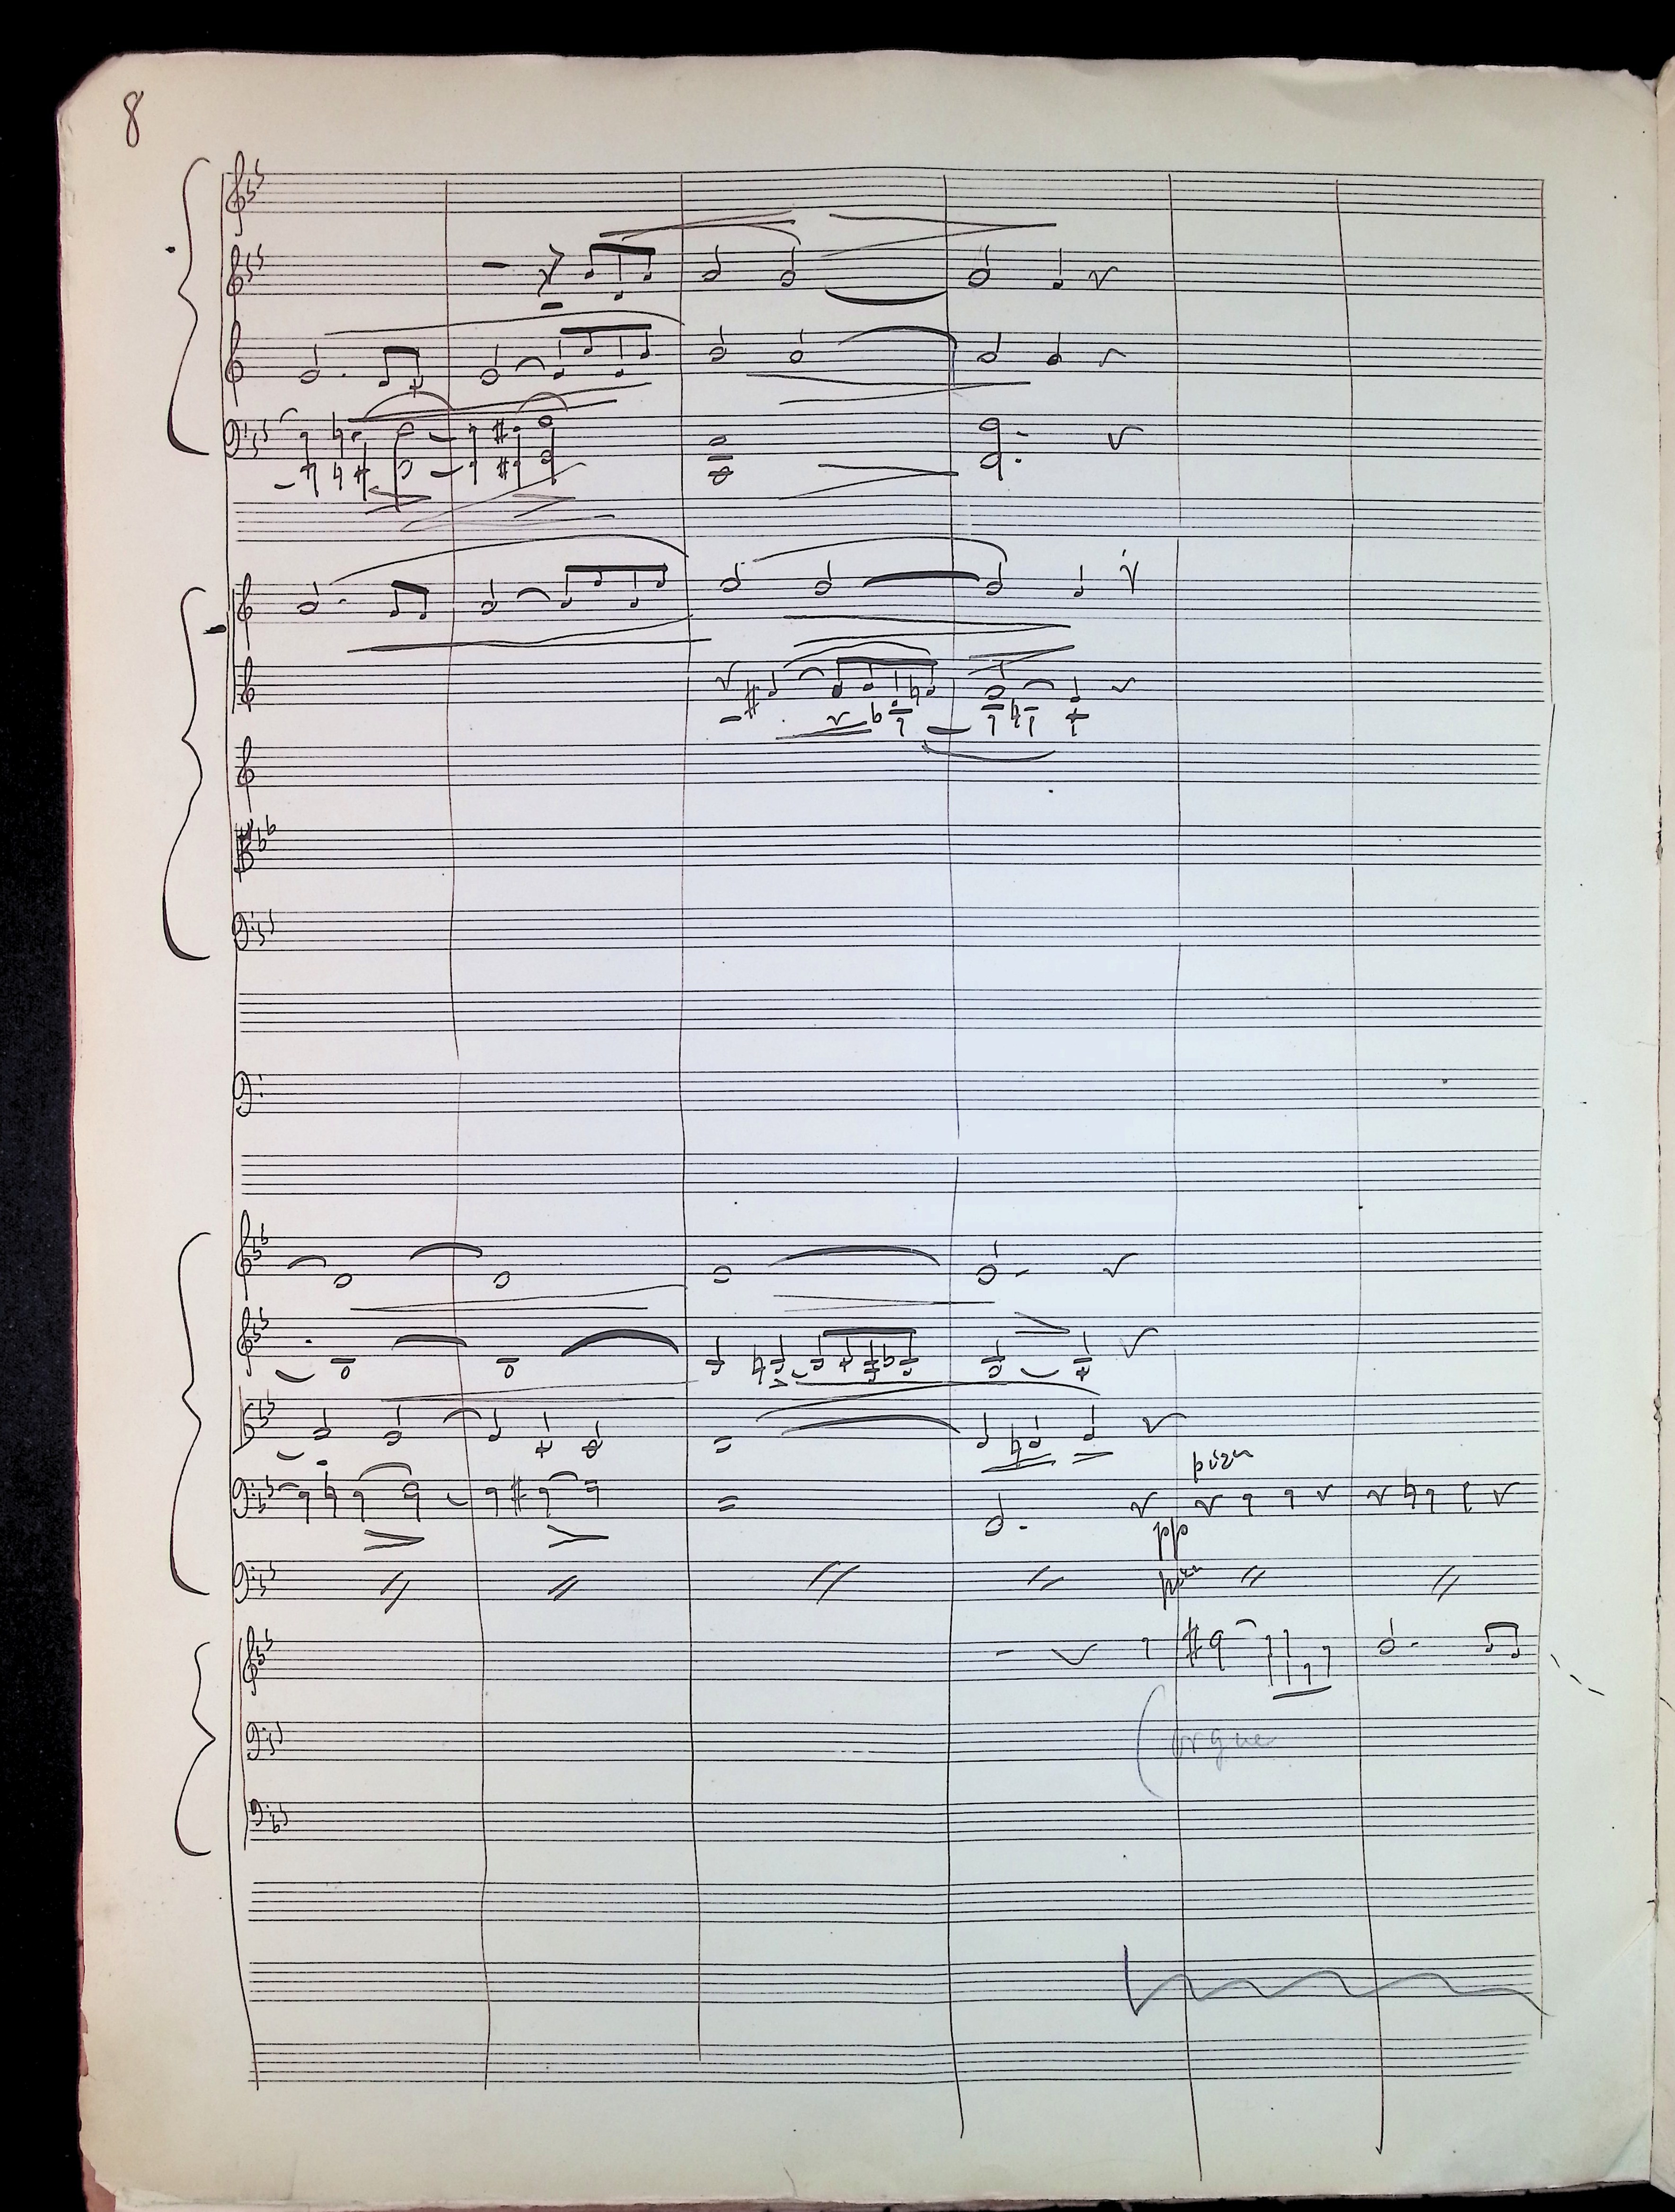 8
pizz
pp
pizz
(orgue